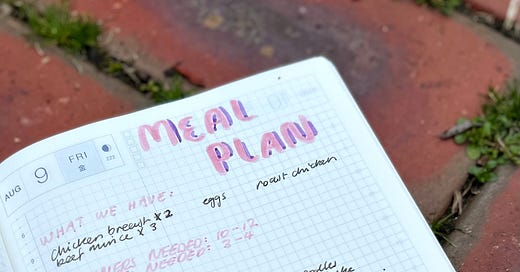 MEAL
PLAN
AUG 9 FRI 金 222
WHAT WE HAVE:
eggs
roast chicken
chicken breast x 2
beef mince x 3
NEEDED: 10-12
NEEDED: 3-4